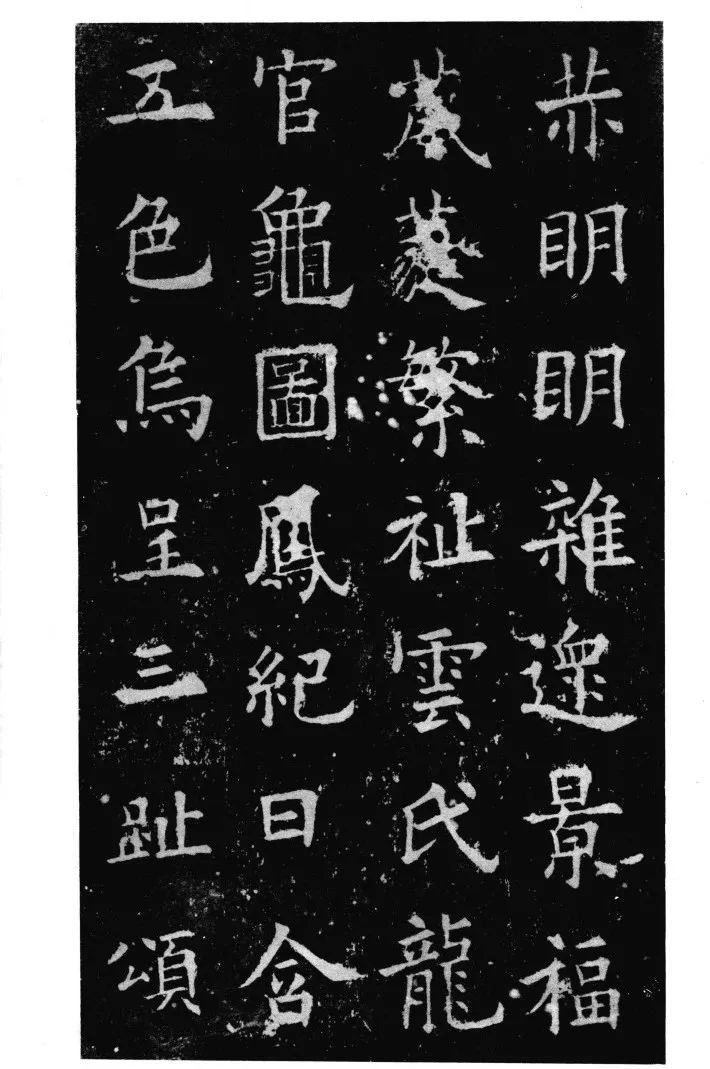 赫明明雜遝景福
葳蕤繁祉雲氏龍
官龜圖鳳紀日含
五色烏呈三趾頌